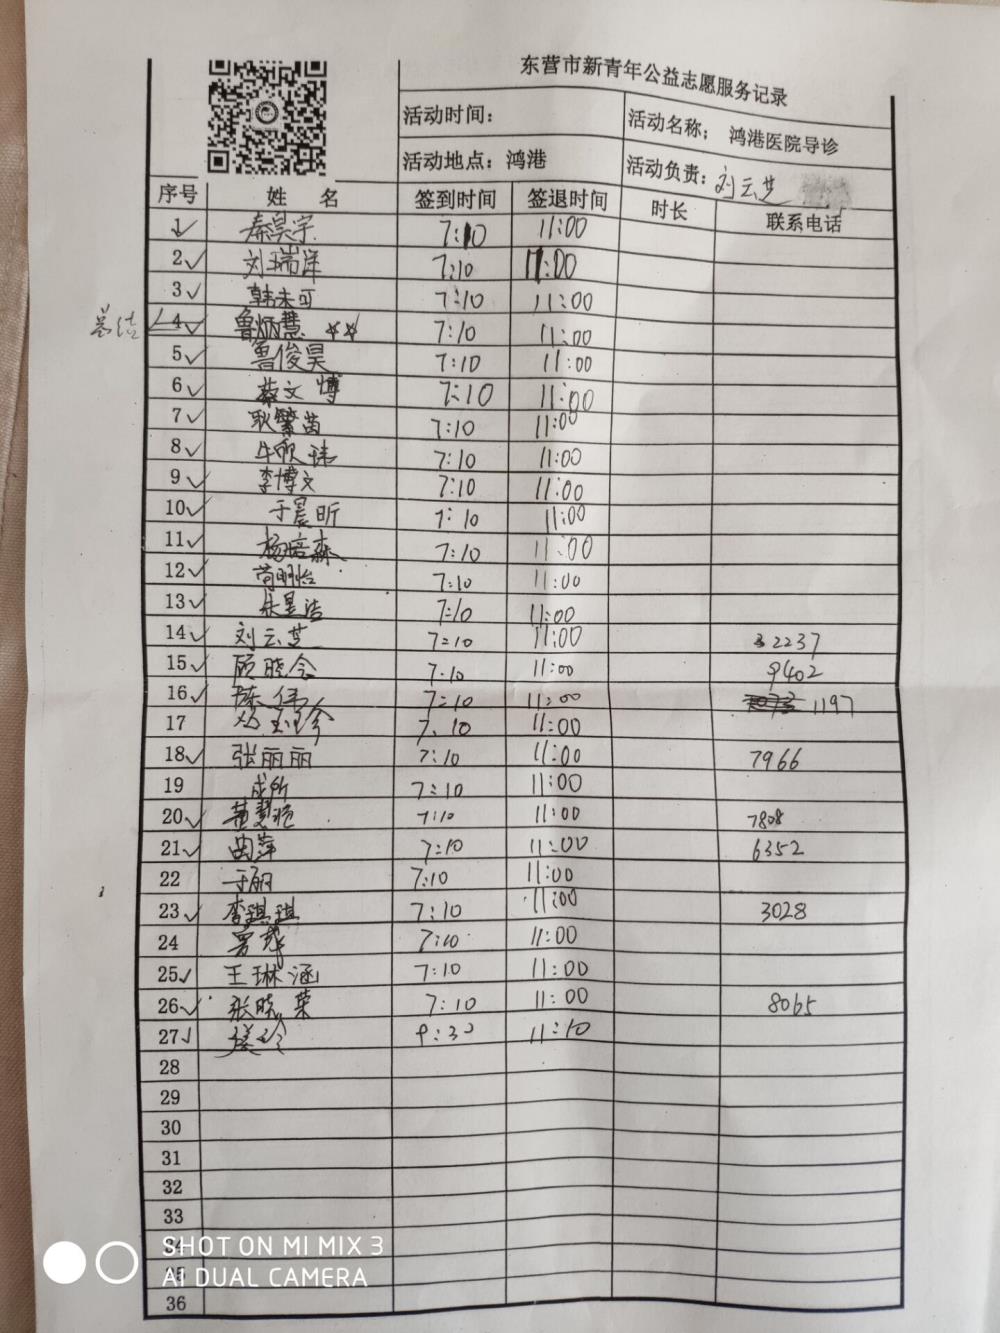 东营市新青年公益志愿服务记录
活动时间： 活动名称： 鸿港医院导诊
活动地点：鸿港 活动负责：刘云芝
序号 姓 名 签到时间 签退时间 时长 联系电话
1 秦昊宇 7:10 11:00
2 刘瑞洋 7:10 11:00
3 韩未可 7:10 11:00
4 鲁炳慧 ☆☆ 7:10 11:00
5 鲁俊昊 7:10 11:00
6 蔡文博 7:10 11:00
7 耿繁茵 7:10 11:00
8 牛欣 7:10 11:00
9 李博文 7:10 11:00
10 于晨昕 7:10 11:00
11 杨培森 7:10 11:00
12 苟明怡 7:10 11:00
13 朱昱洁 7:10 11:00
14 刘云芝 7:10 11:00 2237
15 顾晓令 7:10 11:00 9402
16 陈伟 7:10 11:00 1197
17 7:10 11:00
18 张丽丽 7:10 11:00 7966
19 成所 7:10 11:00
20 黄慧艳 7:10 11:00 7808
21 曲萍 7:10 11:00 6352
22 于丽 7:10 11:00
23 李琪琪 7:10 11:00 3028
24 7:10 11:00
25 王琳涵 7:10 11:00
26 张晓荣 7:10 11:00 8065
27 9:30 11:10
28
29
30
31
32
33
34
35
36
SHOT ON MI MIX 3
AI DUAL CAMERA